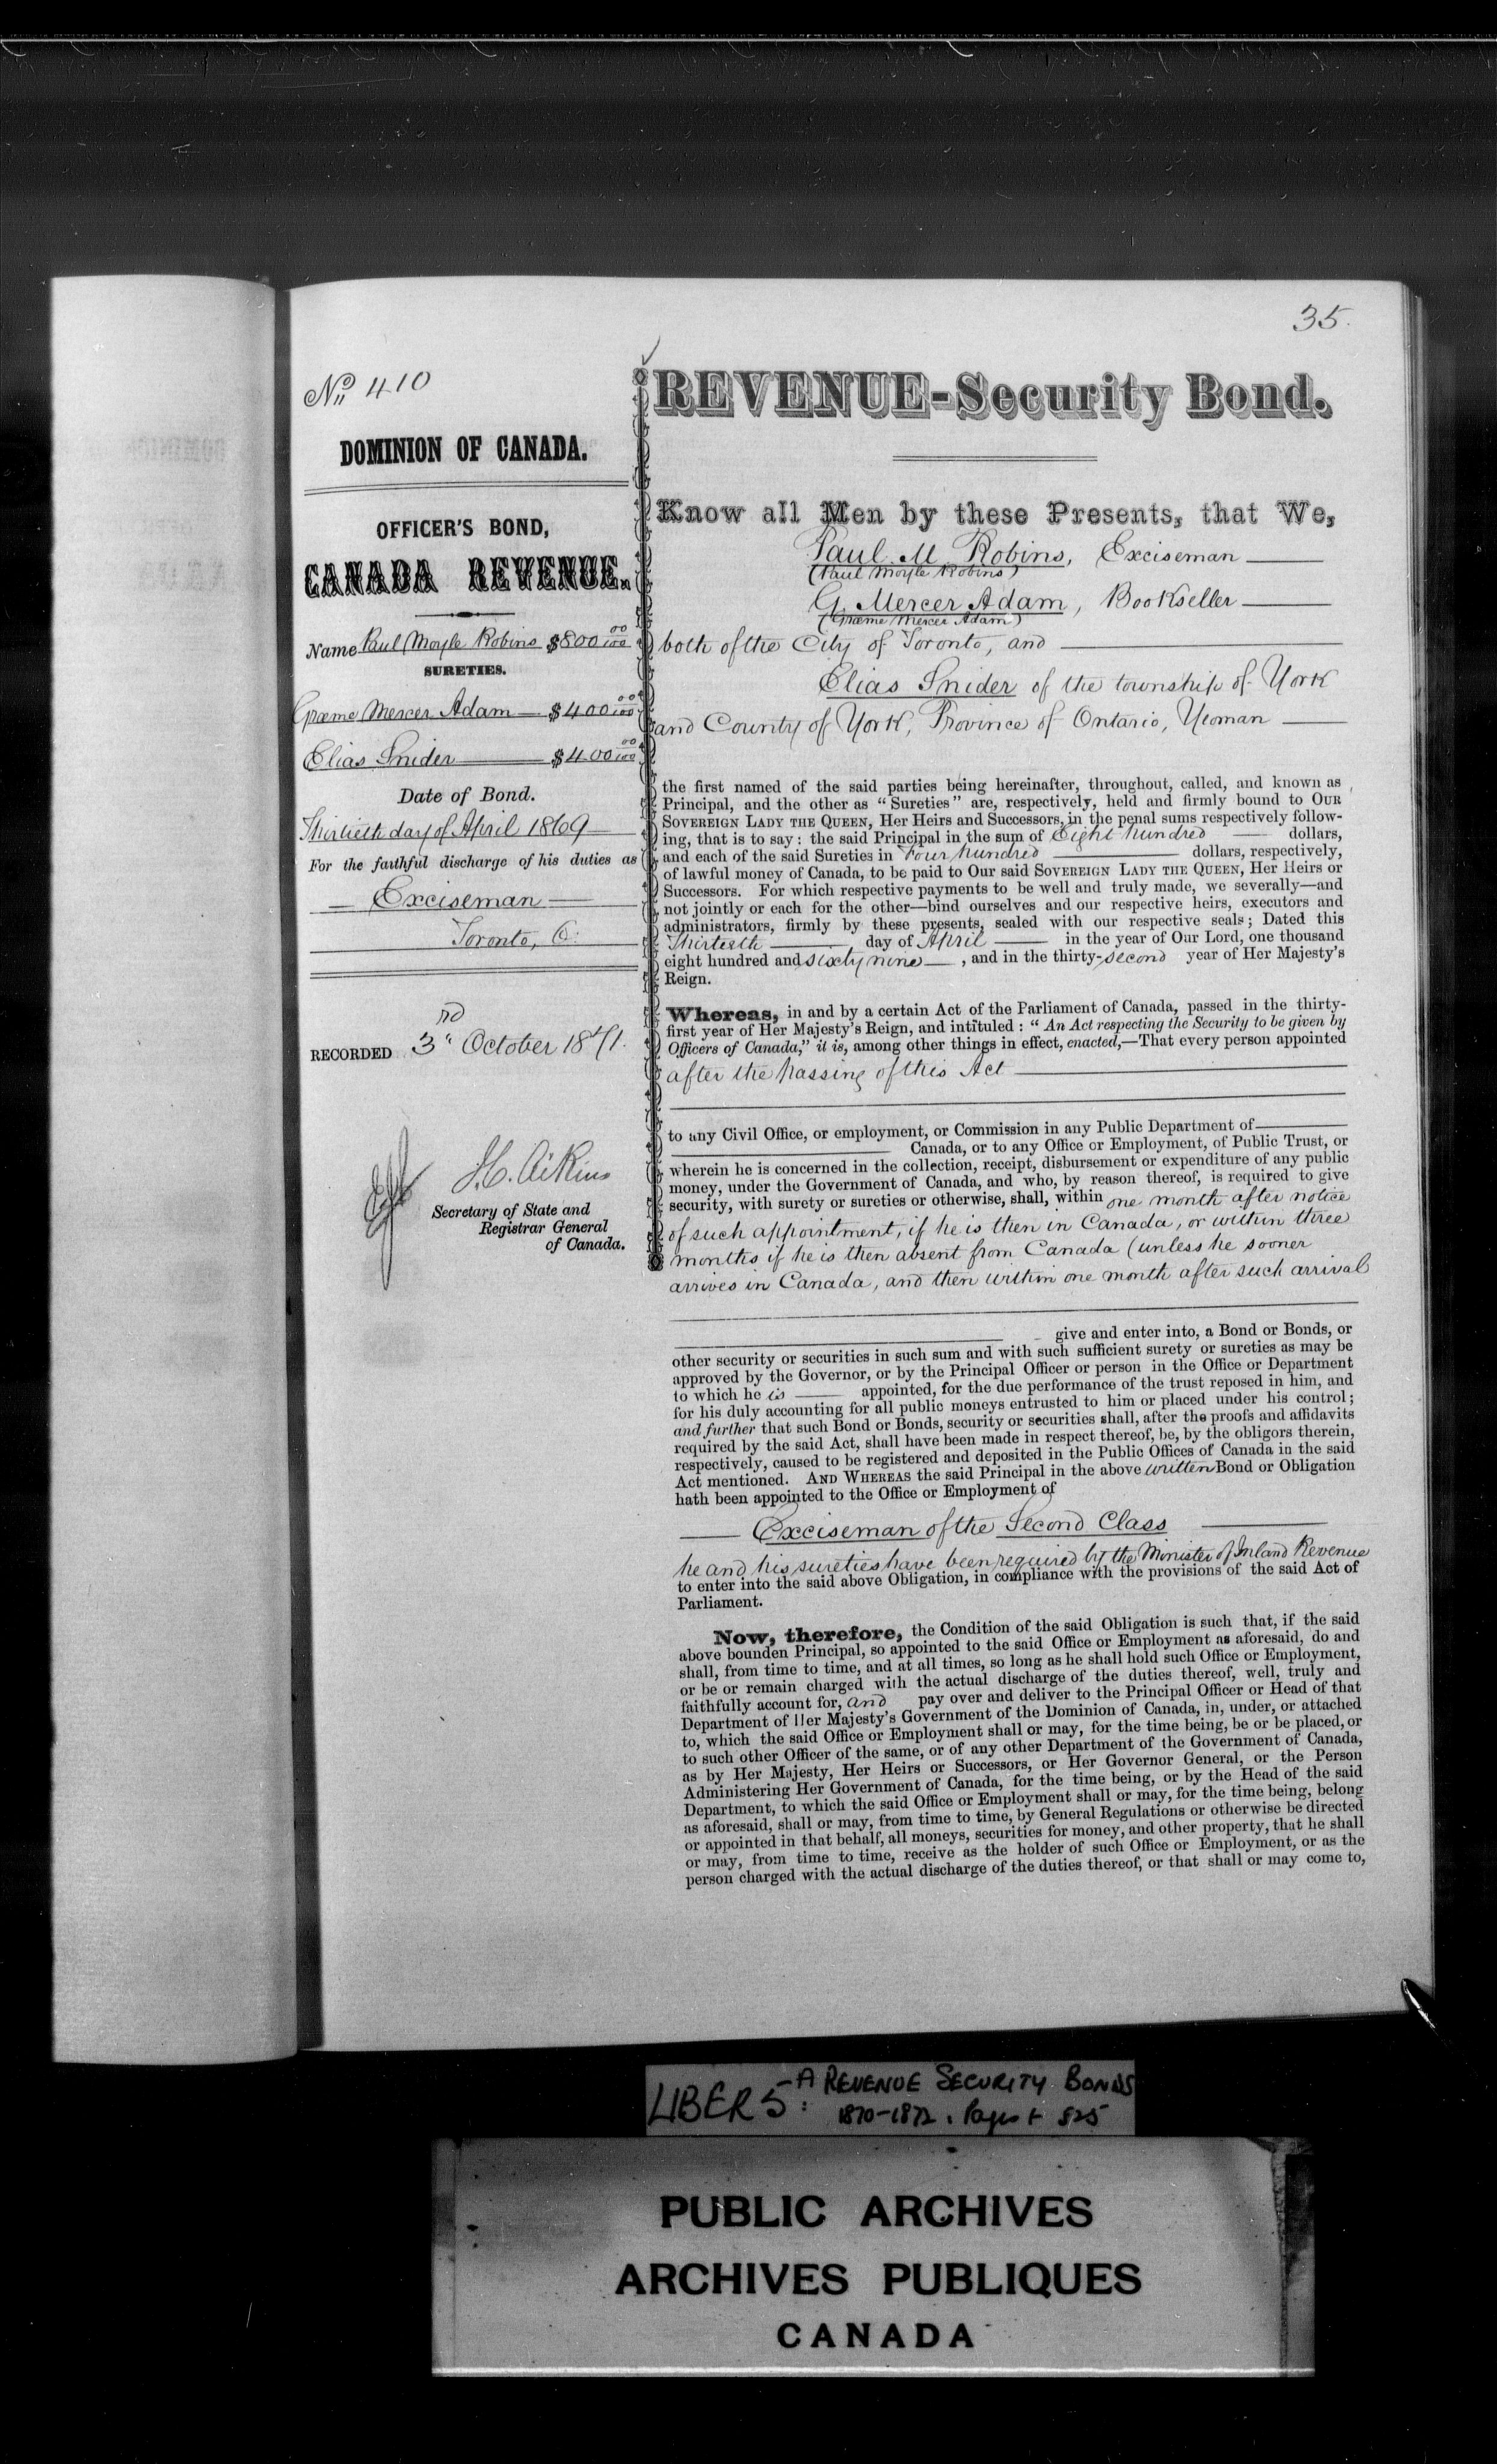 35.
No 410
DOMINION OF CANADA.
OFFICER'S BOND,
CANADA REVENUE.
Name Paul Moyle Robins $800 00/100
SURETIES.
Græme Mercer Adam — $400 00/100
Elias Snider — $400 00/100
Date of Bond.
Thirtieth day of April 1869 —
For the faithful discharge of his duties as
— Exciseman —
Toronto, O.
RECORDED 3rd October 1871.
J.C. Aikins
Secretary of State and
Registrar General
of Canada.
REVENUE-Security Bond.
Know all Men by these Presents, that We,
Paul M Robins, Exciseman —
(Paul Moyle Robins)
G. Mercer Adam, Bookseller —
(Græme Mercer Adam)
both of the City of Toronto, and —
Elias Snider of the township of York
and County of York, Province of Ontario, Yeoman —
the first named of the said parties being hereinafter, throughout, called, and known as
Principal, and the other as "Sureties" are, respectively, held and firmly bound to OUR
SOVEREIGN LADY THE QUEEN, Her Heirs and Successors, in the penal sums respectively follow-
ing, that is to say: the said Principal in the sum of Eight hundred — dollars,
and each of the said Sureties in Four hundred — dollars, respectively,
of lawful money of Canada, to be paid to Our said SOVEREIGN LADY THE QUEEN, Her Heirs or
Successors. For which respective payments to be well and truly made, we severally—and
not jointly or each for the other—bind ourselves and our respective heirs, executors and
administrators, firmly by these presents, sealed with our respective seals; Dated this
Thirtieth — day of April — in the year of Our Lord, one thousand
eight hundred and sixty nine —, and in the thirty-second year of Her Majesty's
Reign.
Whereas, in and by a certain Act of the Parliament of Canada, passed in the thirty-
first year of Her Majesty's Reign, and intituled: "An Act respecting the Security to be given by
Officers of Canada," it is, among other things in effect, enacted,—That every person appointed
after the passing of this Act —
to any Civil Office, or employment, or Commission in any Public Department of —
— Canada, or to any Office or Employment, of Public Trust, or
wherein he is concerned in the collection, receipt, disbursement or expenditure of any public
money, under the Government of Canada, and who, by reason thereof, is required to give
security, with surety or sureties or otherwise, shall, within one month after notice
of such appointment, if he is then in Canada, or within three
months if he is then absent from Canada (unless he sooner
arrives in Canada, and then within one month after such arrival
— give and enter into, a Bond or Bonds, or
other security or securities in such sum and with such sufficient surety or sureties as may be
approved by the Governor, or by the Principal Officer or person in the Office or Department
to which he is — appointed, for the due performance of the trust reposed in him, and
for his duly accounting for all public moneys entrusted to him or placed under his control;
and further that such Bond or Bonds, security or securities shall, after the proofs and affidavits
required by the said Act, shall have been made in respect thereof, be, by the obligors therein,
respectively, caused to be registered and deposited in the Public Offices of Canada in the said
Act mentioned. AND WHEREAS the said Principal in the above written Bond or Obligation
hath been appointed to the Office or Employment of
— Exciseman of the Second Class —
he and his sureties have been required by the Minister of Inland Revenue
to enter into the said above Obligation, in compliance with the provisions of the said Act of
Parliament.
Now, therefore, the Condition of the said Obligation is such that, if the said
above bounden Principal, so appointed to the said Office or Employment as aforesaid, do and
shall, from time to time, and at all times, so long as he shall hold such Office or Employment,
or be or remain charged with the actual discharge of the duties thereof, well, truly and
faithfully account for, and pay over and deliver to the Principal Officer or Head of that
Department of Her Majesty's Government of the Dominion of Canada, in, under, or attached
to, which the said Office or Employment shall or may, for the time being, be or be placed, or
to such other Officer of the same, or of any other Department of the Government of Canada,
as by Her Majesty, Her Heirs or Successors, or Her Governor General, or the Person
Administering Her Government of Canada, for the time being, or by the Head of the said
Department, to which the said Office or Employment shall or may, for the time being, belong
as aforesaid, shall or may, from time to time, by General Regulations or otherwise be directed
or appointed in that behalf, all moneys, securities for money, and other property, that he shall
or may, from time to time, receive as the holder of such Office or Employment, or as the
person charged with the actual discharge of the duties thereof, or that shall or may come to,
LIBER 5-A: REVENUE SECURITY BONDS
1870-1872. Pages 1- 525
PUBLIC ARCHIVES
ARCHIVES PUBLIQUES
CANADA